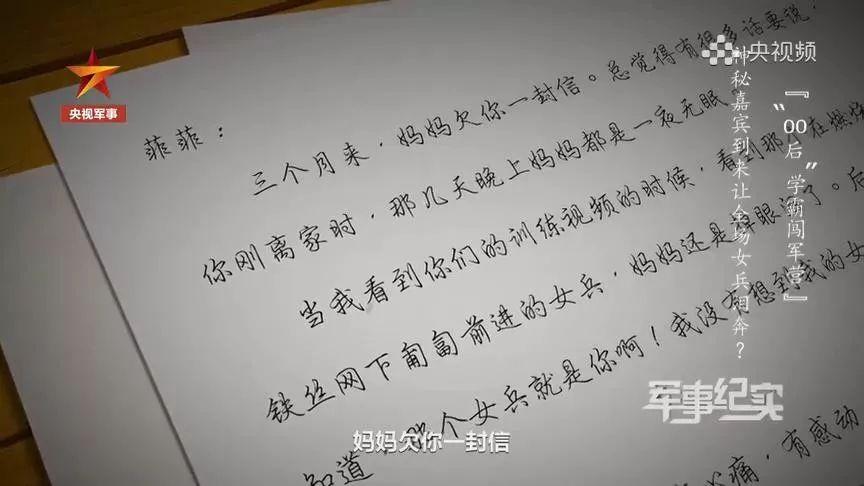 央视军事
央视频
『“00后”学霸闯军营』
神秘嘉宾到来让全场女兵泪奔？
菲菲：
三个月来，妈妈欠你一封信。总觉得有很多话要说，
你刚离家时，那几天晚上妈妈都是一夜无眠
当我看到你们的训练视频的时候，看到那个在燃烧
铁丝网下匍匐前进的女兵，妈妈还是掉眼泪了。后
知道 那个女兵就是你啊！我没有想到我的女
心痛，有感动
军事纪实
妈妈欠你一封信